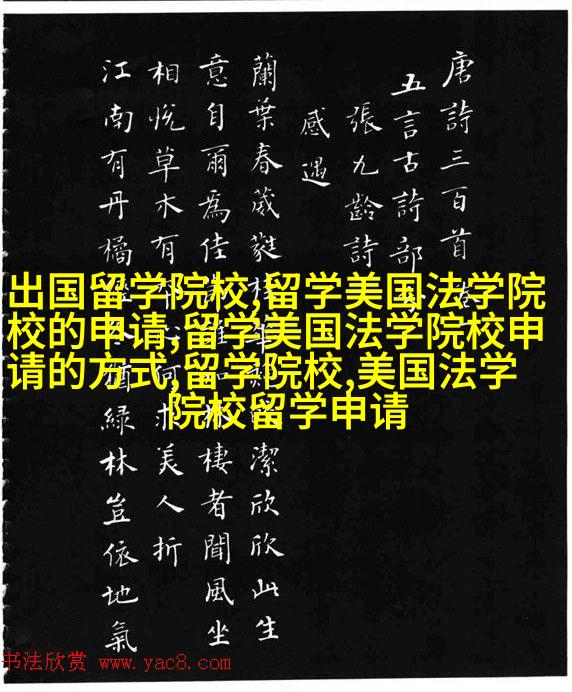 唐詩三百首
五言古詩部
張九齡詩
感遇
蘭葉春葳蕤桂潔欣欣此生
意自爾為佳棲者聞風坐
相悅草木有何求美人折
江南有丹橘猶綠林豈依地氣
出国留学院校,留学美国法学院
校的申请,留学美国法学院校申
请的方式,留学院校,美国法学
院校留学申请
书法欣赏 www.yac8.com